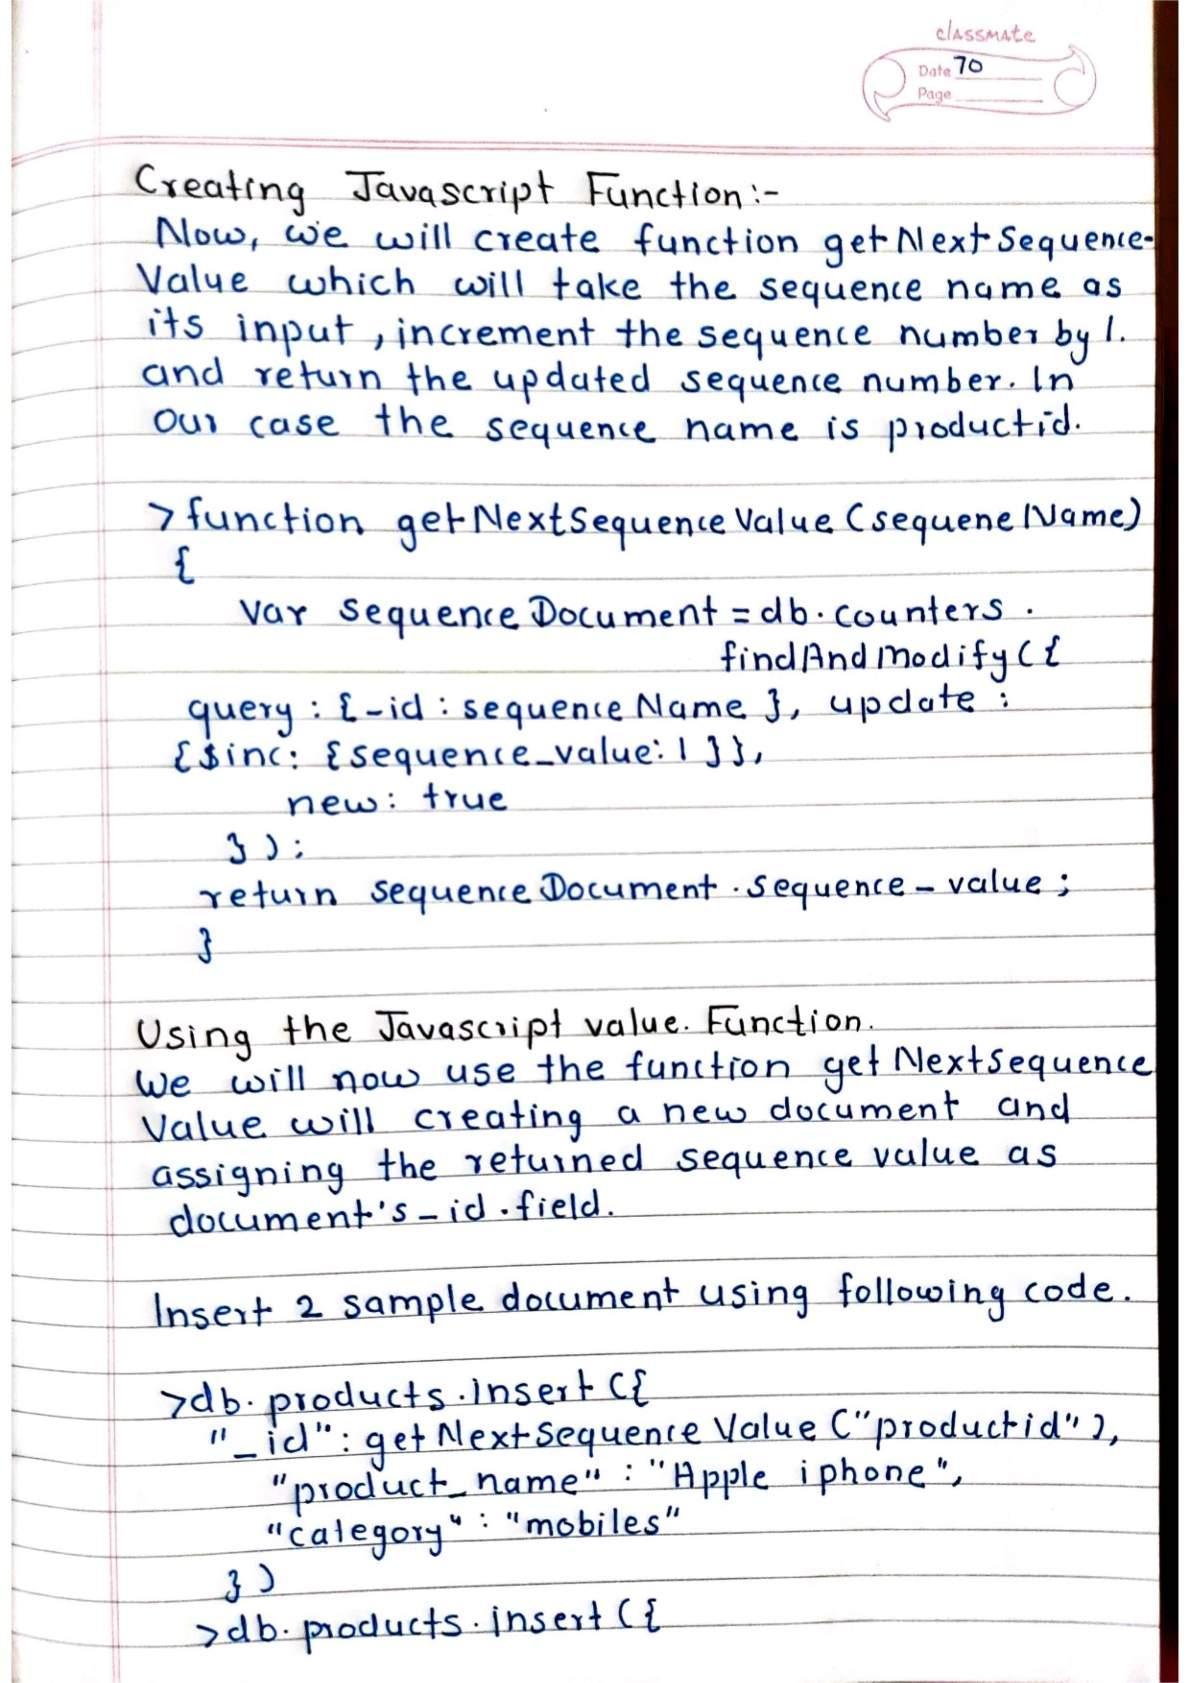 classmate
Date 70
Page
Creating Javascript Function:-
Now, we will create function getNextSequence-
Value which will take the sequence name as
its input, increment the sequence number by 1.
and return the updated sequence number. In
our case the sequence name is productid.
>function getNextSequenceValue(sequeneName)
{
var sequenceDocument = db.counters.
findAndModify({
query : {_id : sequenceName }, update :
{$inc: {sequence_value: 1 }},
new: true
});
return sequenceDocument.sequence_value;
}
Using the Javascript value. Function.
We will now use the function getNextSequence
Value will creating a new document and
assigning the returned sequence value as
document's _id.field.
Insert 2 sample document using following code.
>db.products.insert({
"_id": getNextSequenceValue("productid"),
"product_name" : "Apple iphone",
"category" : "mobiles"
})
>db.products.insert({